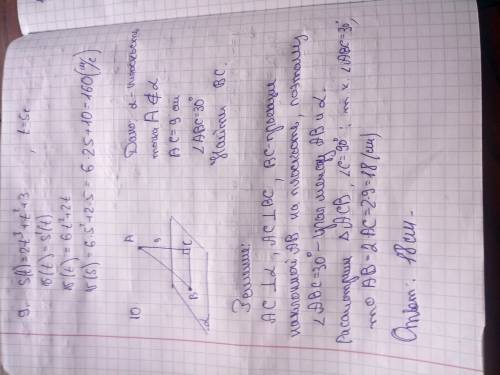 9. S(t) = 2t³ + t² + 3 , t = 5c
v(t) = S'(t)
v(t) = 6t² + 2t
v(5) = 6·5² + 2·5 = 6·25 + 10 = 160 (м/с)
10
A
9
B
C
α
Дано: α - плоскость
точка A ∉ α
AC = 9 см
∠ABC = 30°
Найти BC.
Решение:
AC ⊥ α, AC ⊥ BC, BC - проекция
наклонной AB на плоскость, поэтому
∠ABC = 30° - угол между AB и α.
Рассмотрим ΔACB, ∠C = 90°; т.к. ∠ABC = 30°,
то AB = 2AC = 2·9 = 18 (см)
Ответ: 18 см.